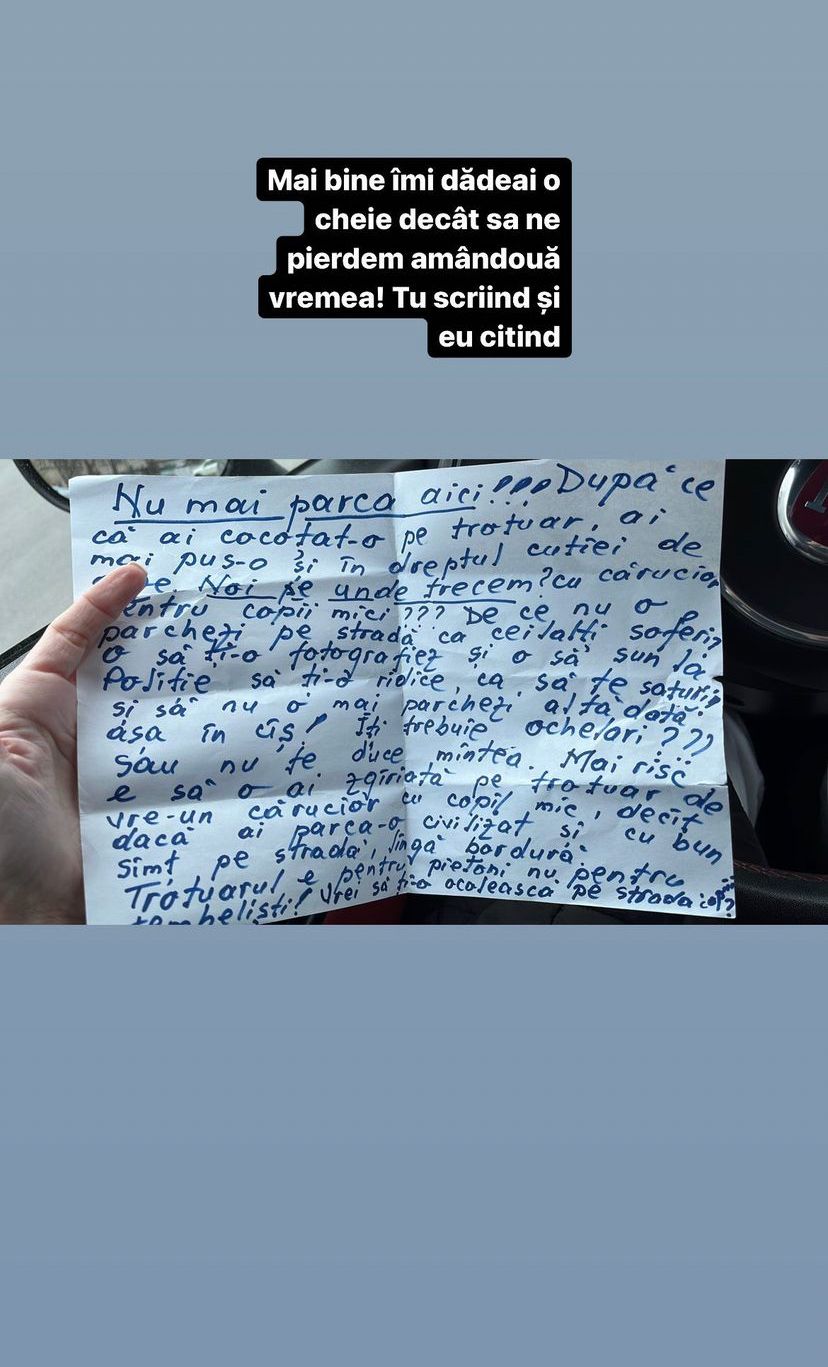 Mai bine îmi dădeai o
cheie decât sa ne
pierdem amândouă
vremea! Tu scriind și
eu citind
Nu mai parca aici!!! După ce
că ai cocoțat-o pe trotuar, ai
mai pus-o și în dreptul cutiei de
Noi pe unde trecem? cu cărucior
pentru copii mici??? De ce nu o
parchezi pe stradă ca ceilalți șoferi?
O să ți-o fotografiez și o să sun la
Poliție să ți-o ridice, ca să te saturi,
și să nu o mai parchezi altă dată
așa în cîș! Îți trebuie ochelari???
Sau nu te duce mintea. Mai risc
e să o ai zgîriată pe trotuar de
vre-un cărucior cu copil mic, decît
dacă ai parca-o civilizat și cu bun
simt pe stradă, lîngă bordură.
Trotuarul e pentru pietoni nu pentru
Vrei să ți-o ocolească pe strada